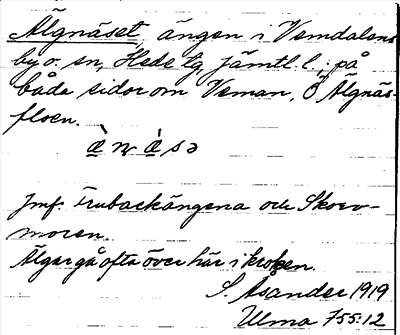 Älgnäset, ängen i Vemdalens
by o. sn, Hede tg, Jämtl. l., på
båda sidor om Veman, Ö Älgnäs-
floen.
Jmf. Trubackängena och Skorv-
moren.
Älgar gå ofta över här i kroken.
S. Åsander 1919
Ulma 755:12